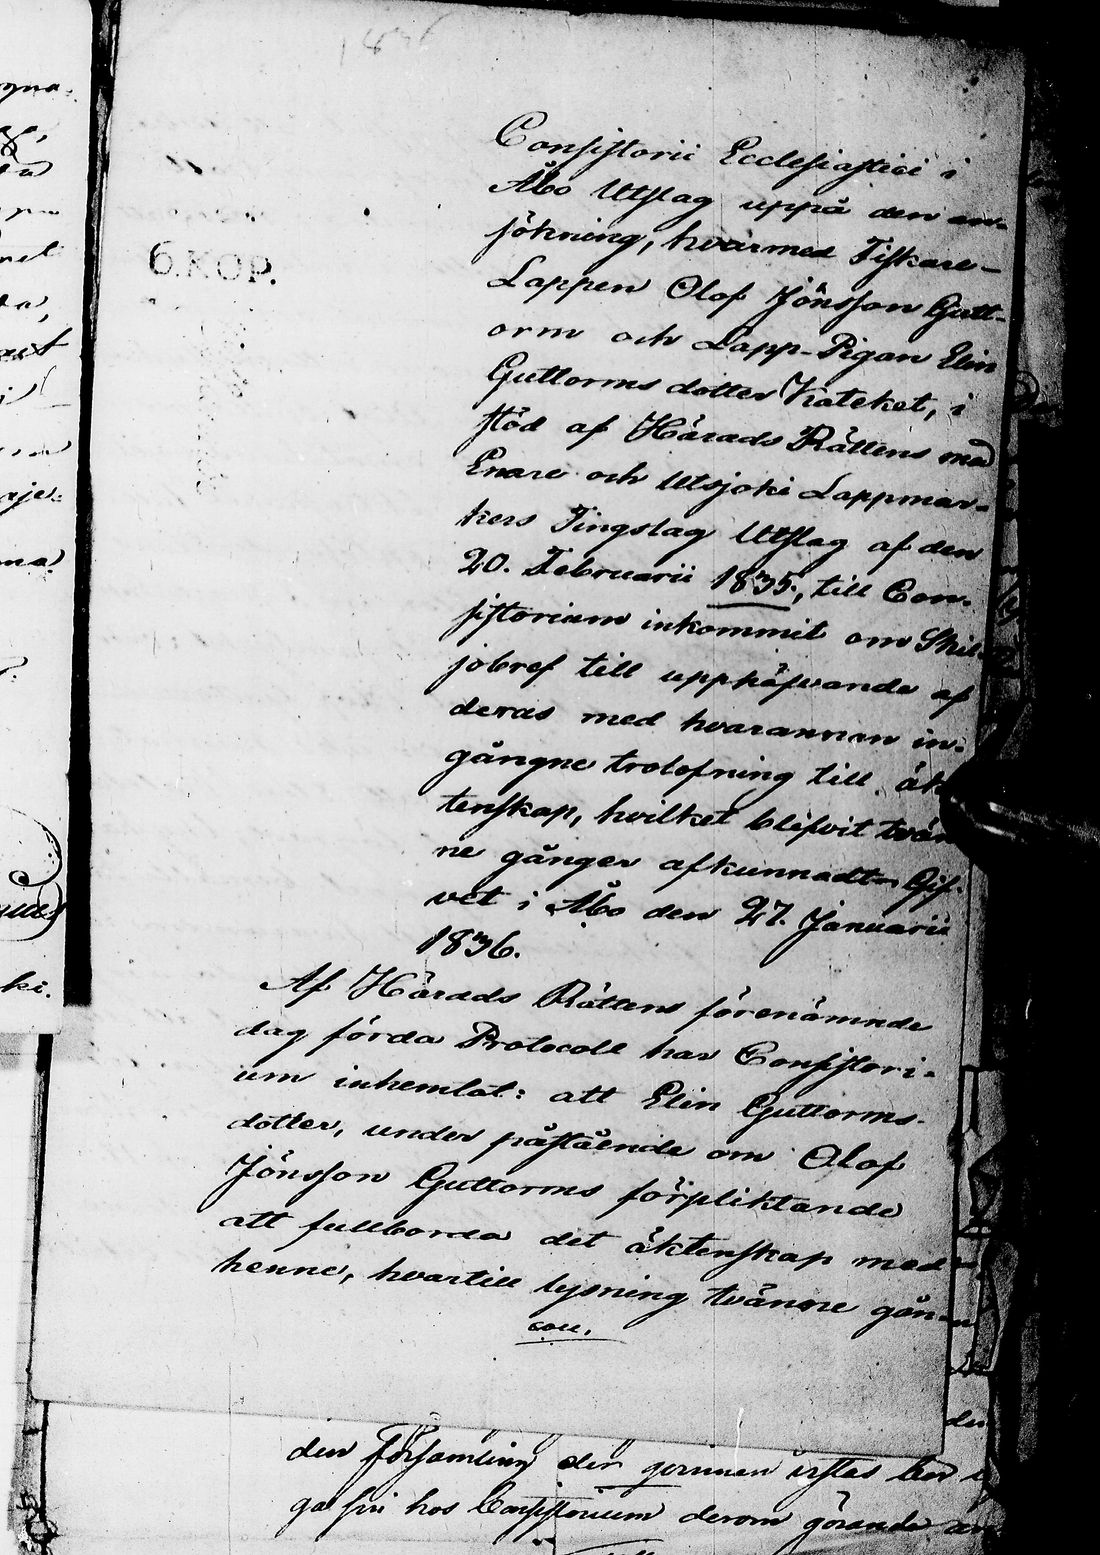 1836
Consistorii Ecclesiastici i
Åbo Utslag uppå den an-
sökning, hvarmed Fiskare-
6.KOP.
Lappen Olof Jönsson Gutt-
orm och Lapp-Pigan Elin
Guttorms dotter Kateket, i
stöd af Härads Rättens med
Enare och Utsjoki Lappmar-
kers Tingslag Utslag af den
20. Februarii 1835., till Con-
sistorium inkommit om Skil
jobref till upphäfvande af
deras med hvarannan in-
gångne trolofning till äk
tenskap, hvilket blifvit tvän
ne gånger afkunnadt. Gif-
vet i Åbo den 27. Januarii
1836.
Af Härads Rättens förenämnde
dag förda Protocoll har Consistori-
um inhemtat: att Elin Guttorms-
dotter, under påstående om Olof
Jönsson Guttorms förpliktande
att fullborda det äktenskap med
henne, hvartill lysning tvänne gån-
den församling der qvinnan vistas
ga sin hos Consistorium derom görande